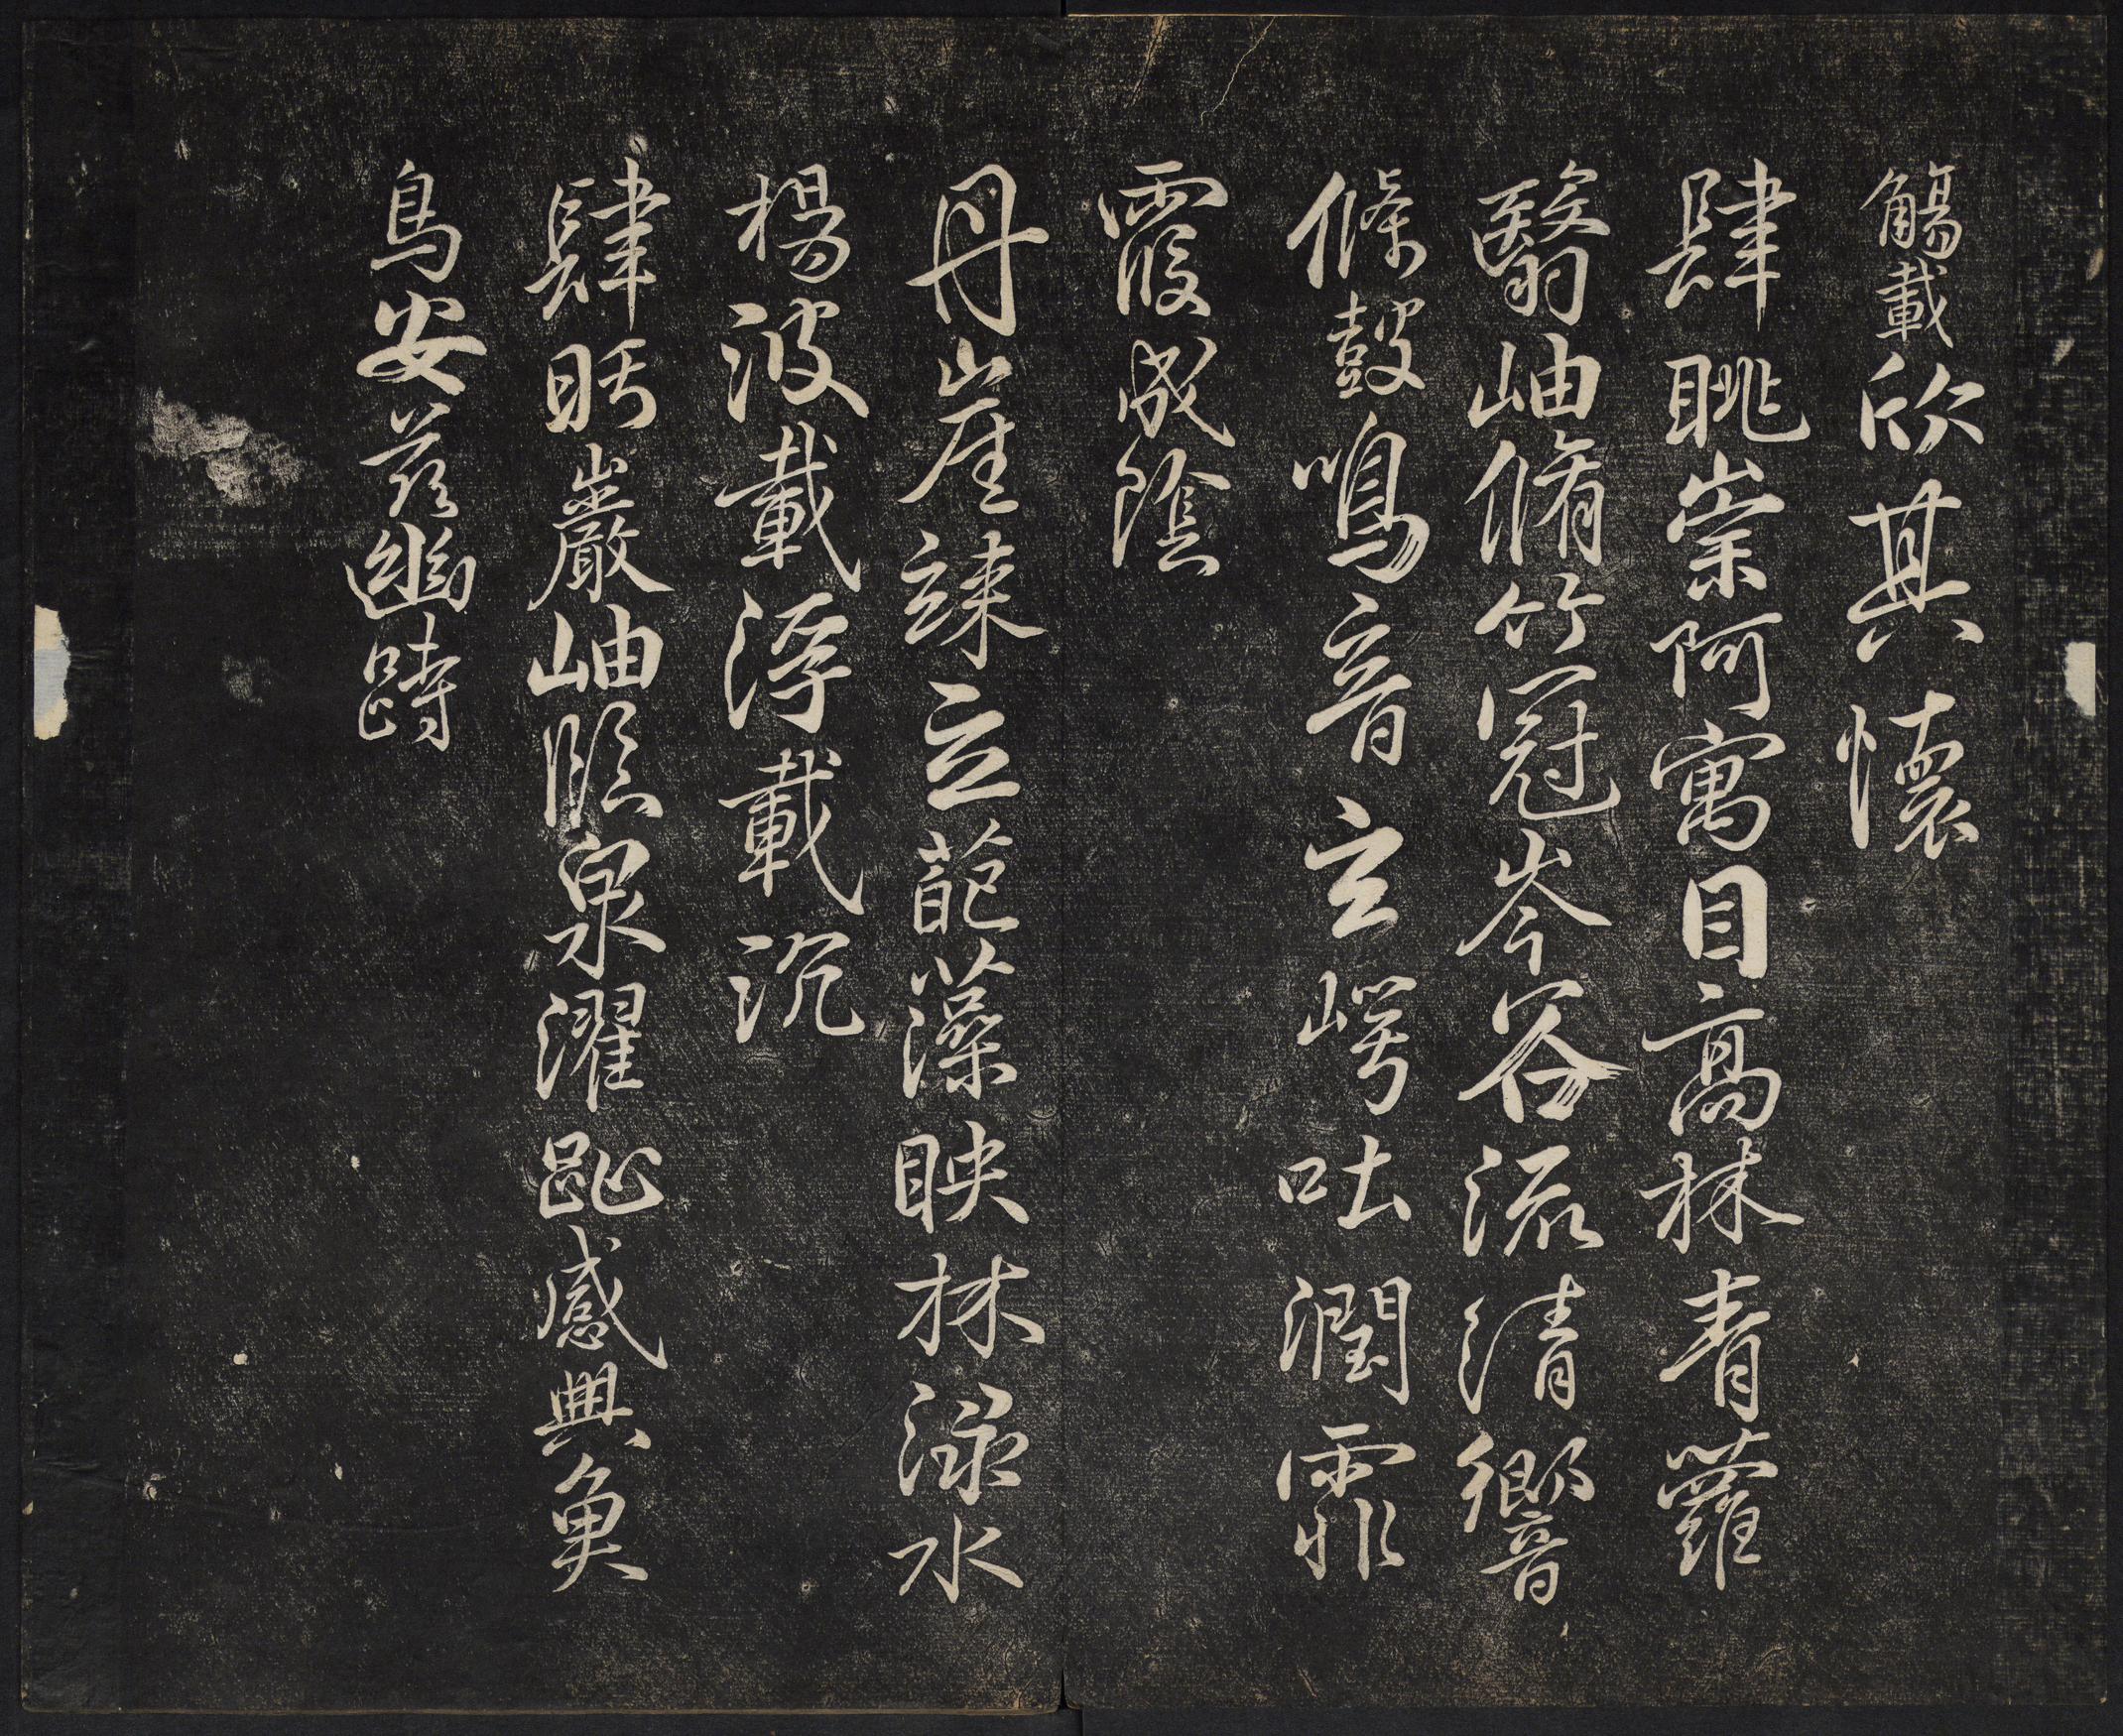 觴載欣其懷
肆眺崇阿寓目高林青蘿
翳岫脩竹冠岑谷流清響
條鼓鳴音玄崿吐潤霏
霞成陰
丹崖竦立葩藻映林淥水
楊波載浮載沉
肆眄巖岫臨泉濯趾感興魚
鳥安茲幽跱